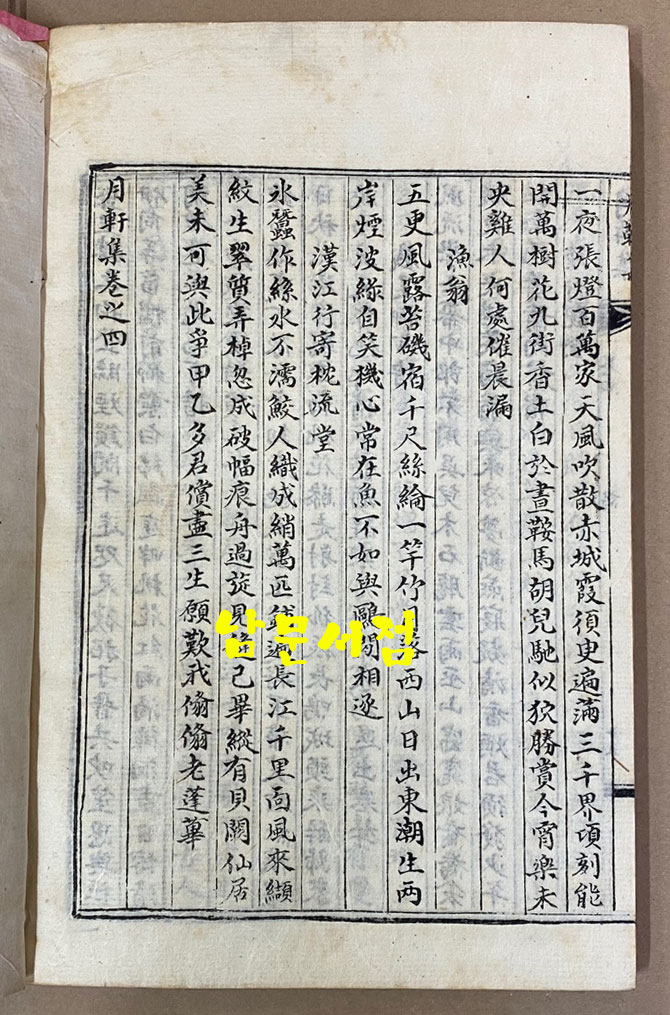 一夜張燈百萬家天風吹散赤城霞須臾遍滿三千界頃刻能
開萬樹花九街香土白於晝鞍馬胡兒馳似勝賞今宵樂未
央雞人何處催晨漏
漁翁
五更風露苔磯宿千尺絲綸一竿竹月落西山日出東潮生兩
岸煙波綠自笑機心常在魚不如與鷗閑相逐
漢江行寄枕流堂
氷蠶作絲水不濡鮫人織成綃萬匹鋪遍長江千里面風來纈
紋生翠質弄棹忽成破幅痕舟過旋見縫已畢縱有貝闕仙居
美未可與此爭甲乙多君償盡三生願歎我偷偷老蓬蓽
月軒集卷之四
남문서점